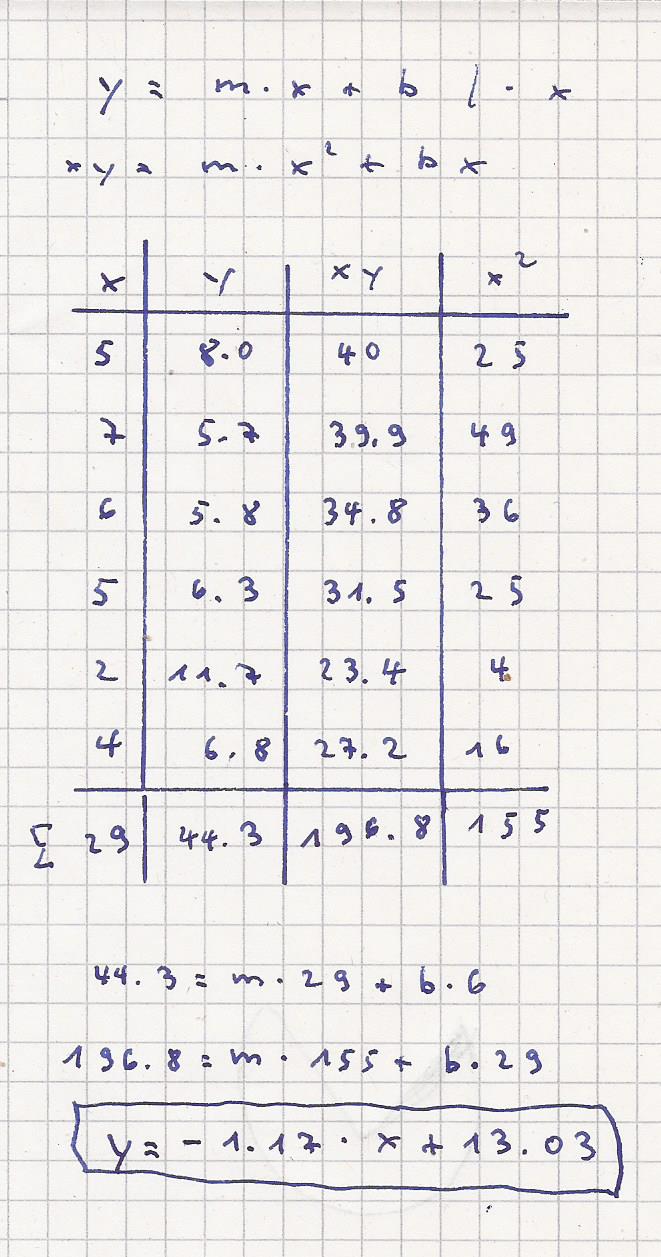 y = m · x + b | · x
xy = m · x² + b x
x y xy x²
5 8.0 40 25
7 5.7 39.9 49
6 5.8 34.8 36
5 6.3 31.5 25
2 11.7 23.4 4
4 6.8 27.2 16
Σ 29 44.3 196.8 155
44.3 = m · 29 + b · 6
196.8 = m · 155 + b · 29
y = - 1.17 · x + 13.03